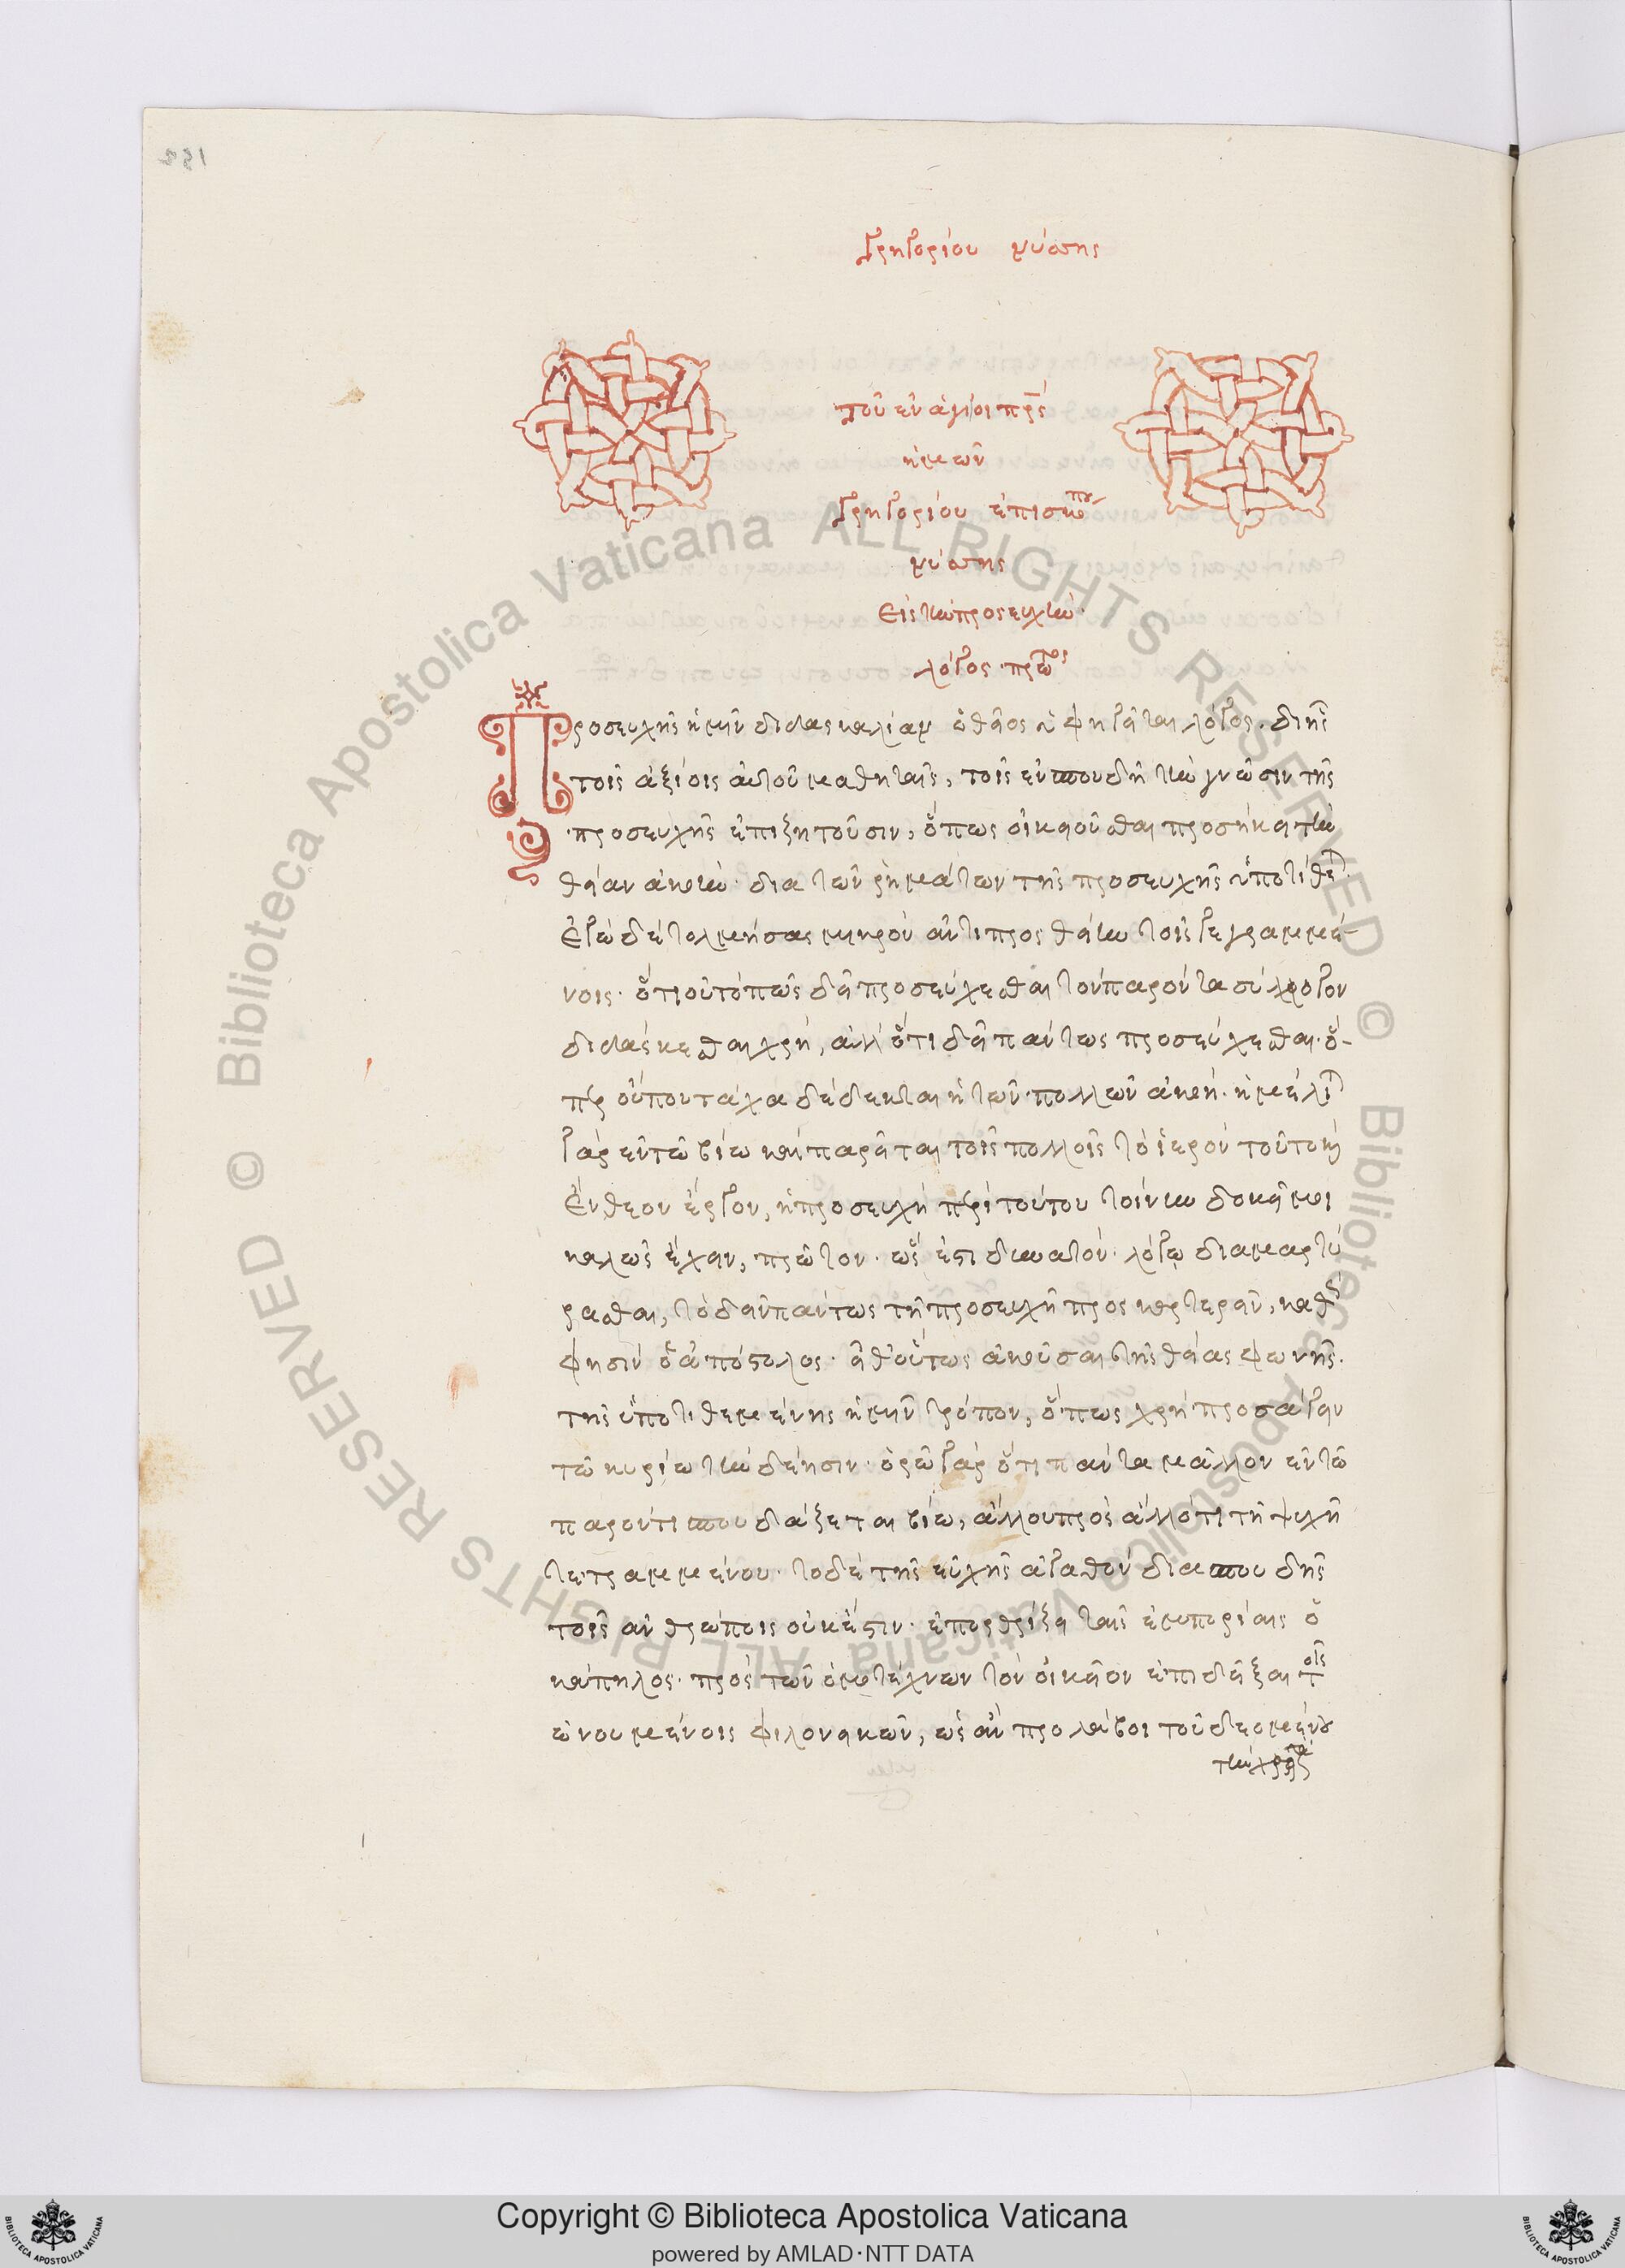 Γρηγορίου νύσσης
τοῦ ἐν ἁγίοι πρς
ἡμῶν
Γρηγορίου ἐπισκόπου
νύσσης
Εἰς τὴν προσευχὴν·
λόγος πρῶτος
Προσευχῆς ἡμῖν διδασκαλίαν ὁ θεῖος ὑφηγεῖται λόγος. δι' ἧς
τοῖς ἀξίοις αὐτοῦ μαθηταῖς, τοῖς ἐν σπουδῇ τὴν γνῶσιν τῆς
προσευχῆς ἐπιζητοῦσιν, ὅπως οἰκειοῦσθαι προσήκει τὴν
θείαν ἀκοὴν· δια τῶν ῥημάτων τῆς προσευχῆς ὑποτίθεται
Ἐγὼ δὲ τολμήσας μικρὸν ἀντιπροσθείην τοῖς γεγραμμέ-
νοις· ὅτι οὐ τὸ πῶς δεῖ προσεύχεσθαι τὸν παρόντα σύλλογον
διδάσκεσθαι χρή, ἀλλ' ὅτι δεῖ πάντως προσεύχεσθαι· ὅ-
περ οὔπου τάχα δέδεκται ἡ τῶν πολλῶν ἀκοή· ἠμέληται
γὰρ ἐν τῷ βίῳ καὶ παρεῖται τοῖς πολλοῖς τὸ ἱερὸν τοῦτο καὶ
ἔνθεον ἔργον, ἡ προσευχή περὶ τούτου τοίνυν δοκεῖ μοι
καλῶς ἔχειν, πρῶτον· ὡς ἔστι δυνατὸν· λόγῳ διαμαρτύ
ρασθαι, τὸ δεῖν πάντως τῇ προσευχῇ προσκαρτερεῖν, καθώς
φησιν ὁ ἀπόστολος· εἶθ' οὕτως ἀκοῦσαι τῆς θείας φωνῆς.
τῆς ὑποτιθεμένης ἡμῖν τρόπον, ὅπως χρὴ προσάγειν
τῷ κυρίῳ τὴν δέησιν· ὁρῶ γὰρ ὅτι πάντα μᾶλλον ἐν τῷ
παρόντι σπουδάζεται βίῳ, ἄλλου πρὸς ἄλλό τι τῇ ψυχῇ
τεταμμένου· τὸ δὲ τῆς εὐχῆς ἀγαθὸν δια σπουδῆς
τοῖς ἀνθρώποις οὐκ ἔστιν· ἐπορθρίζει ταῖς ἐμπορίαις ὁ
κάπηλος· πρὸς τῶν ὁμοτέχνων τὸν οἰκεῖον ἐπιδεῖξαι τοῖς
ὠνουμένοις φιλονεικῶν, ὡς ἂν προλάβοι τοῦ δεομένου
τὴν χρείαν
Copyright © Biblioteca Apostolica Vaticana
powered by AMLAD·NTT DATA